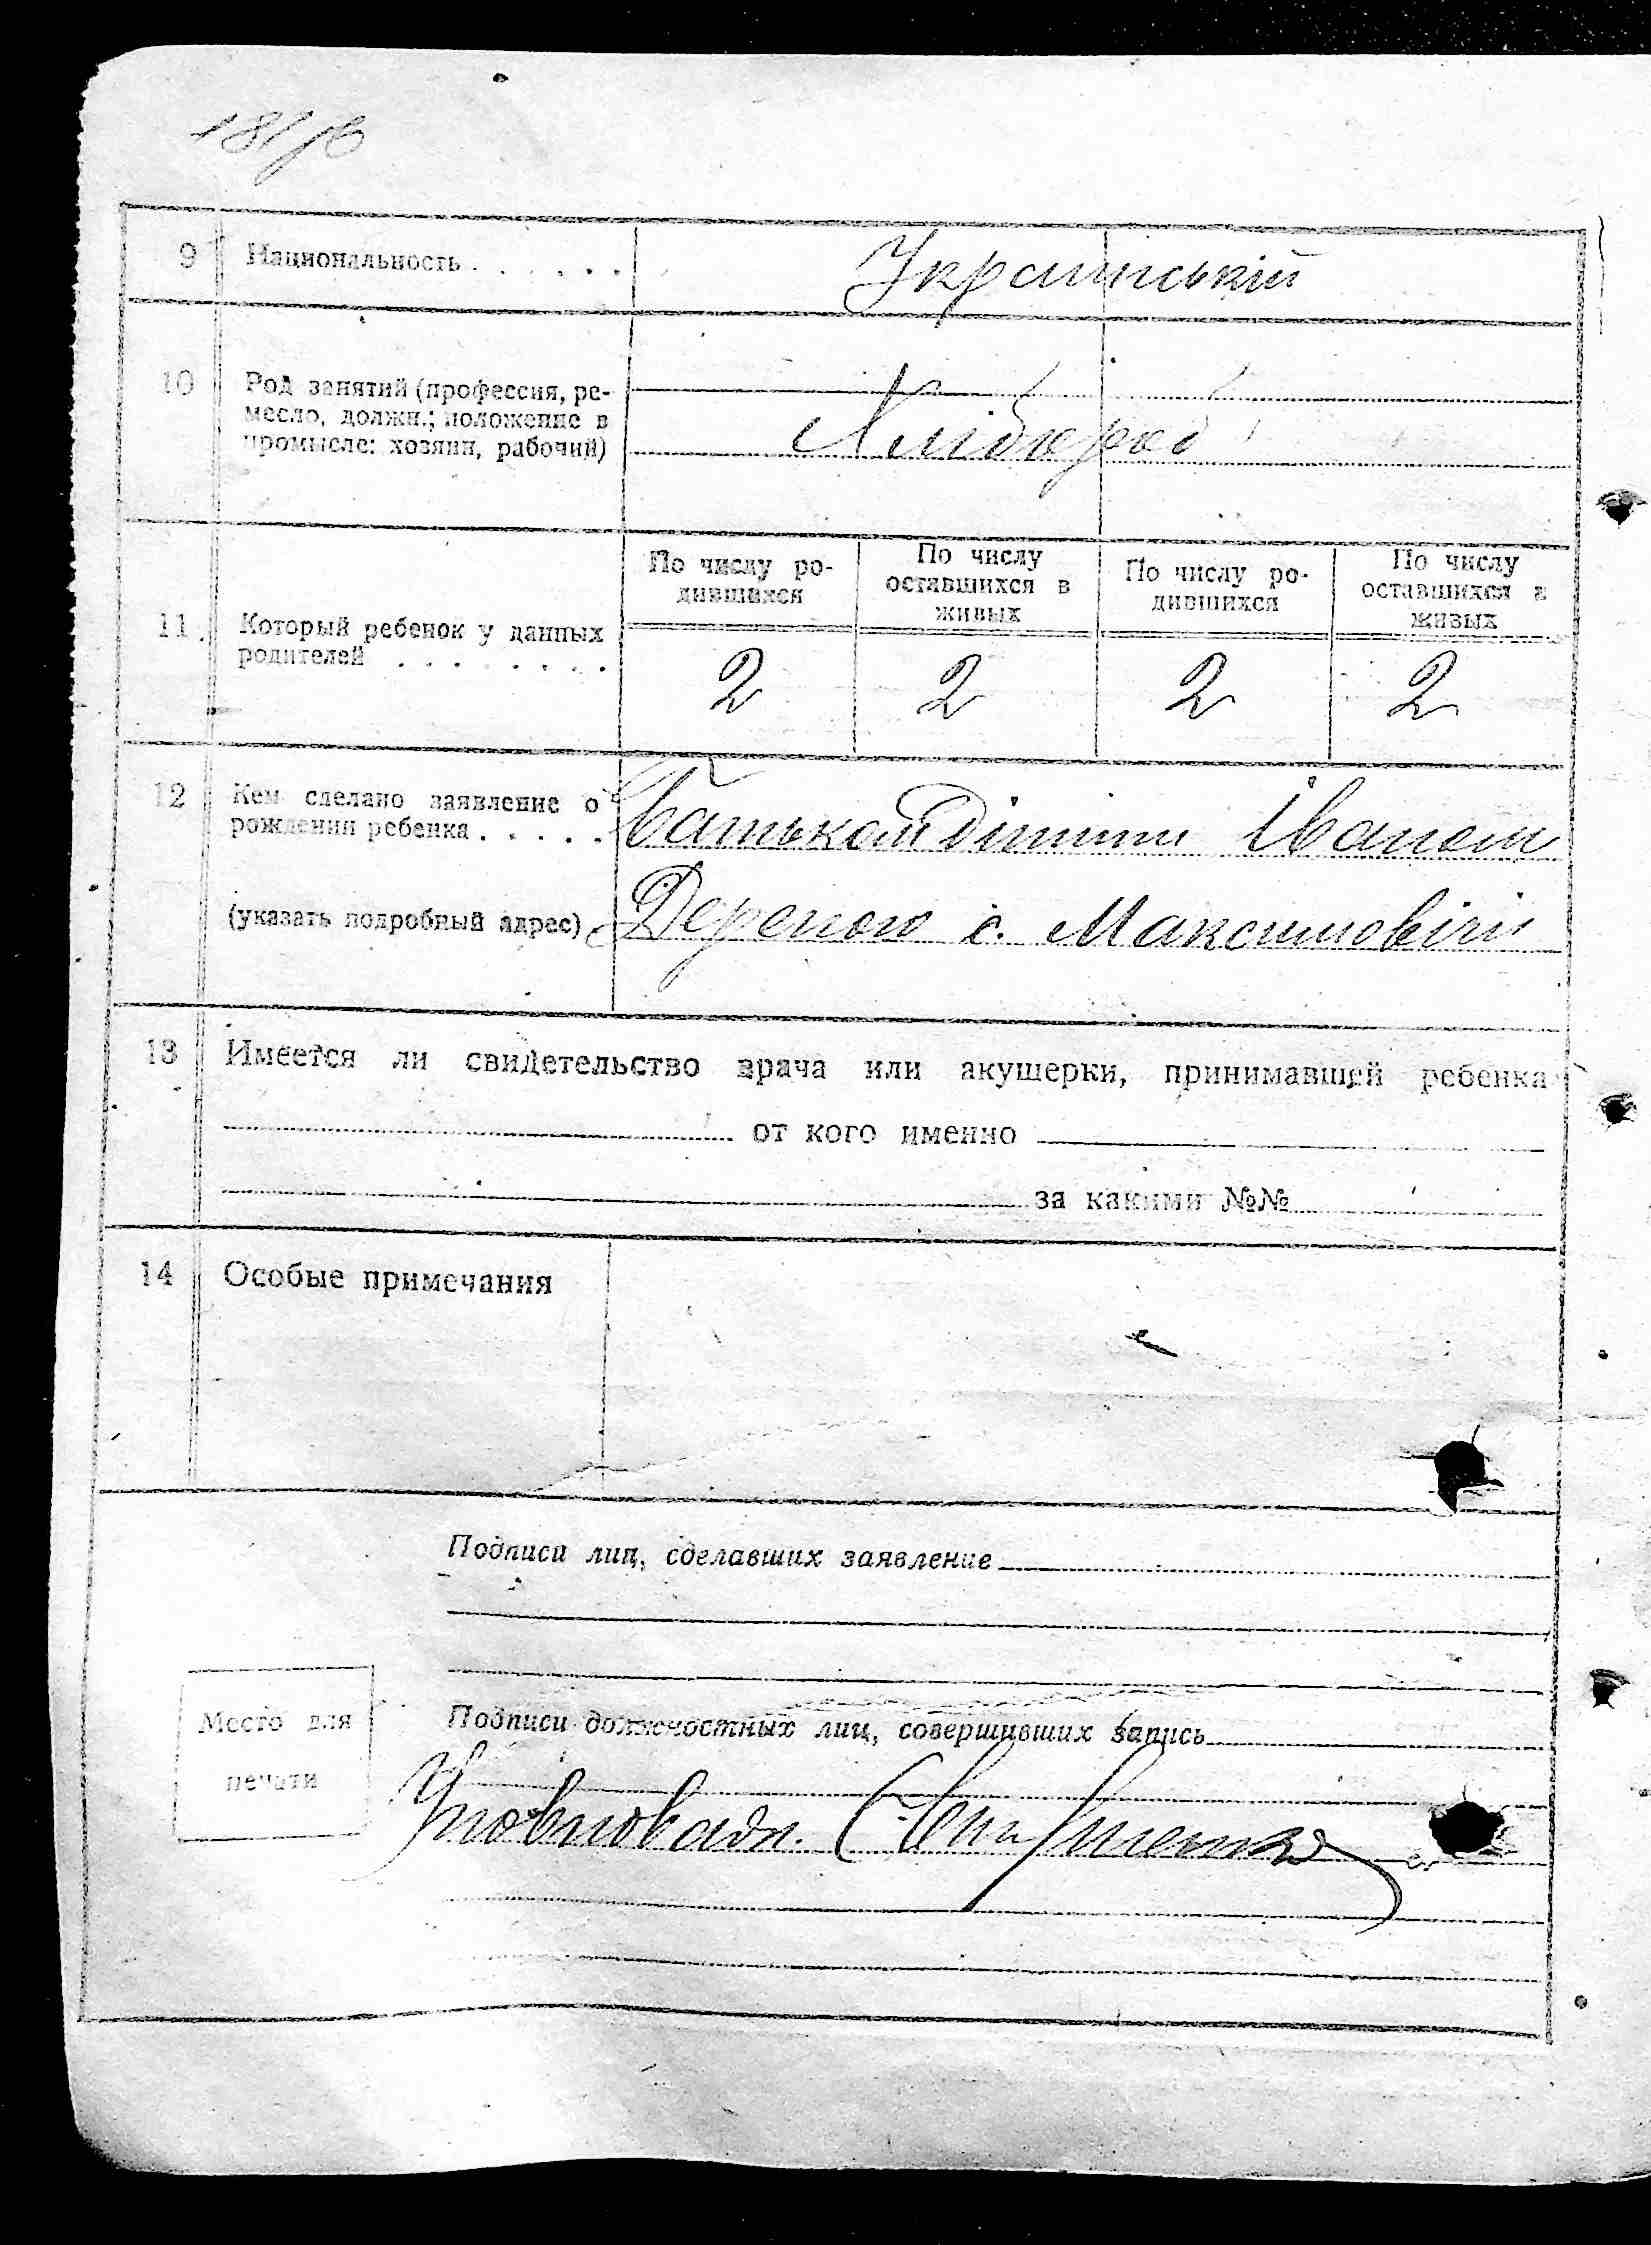 9 Национальность . . . . . .
Український
10 Род занятий (профессия, ре-
месло, должн.; положение в
промысле: хозяин, рабочий)
Хлібороб
11. Который ребенок у данных
родителей . . . . . . . .
По числу ро-
дившихся
По числу
оставшихся в
живых
По числу ро-
дившихся
По числу
оставшихся в
живых
2 2 2 2
12 Кем сделано заявление о
рождении ребенка . . . . .
Батьком дитини Іваном
(указать подробный адрес)
Дерепою с. Максимовичи
13 Имеется ли свидетельство врача или акушерки, принимавшей ребенка
от кого именно
за какими №№
14 Особые примечания
Подписи лиц, сделавших заявление
Место для
печати
Подписи должностных лиц, совершивших запись
Уповноваж.